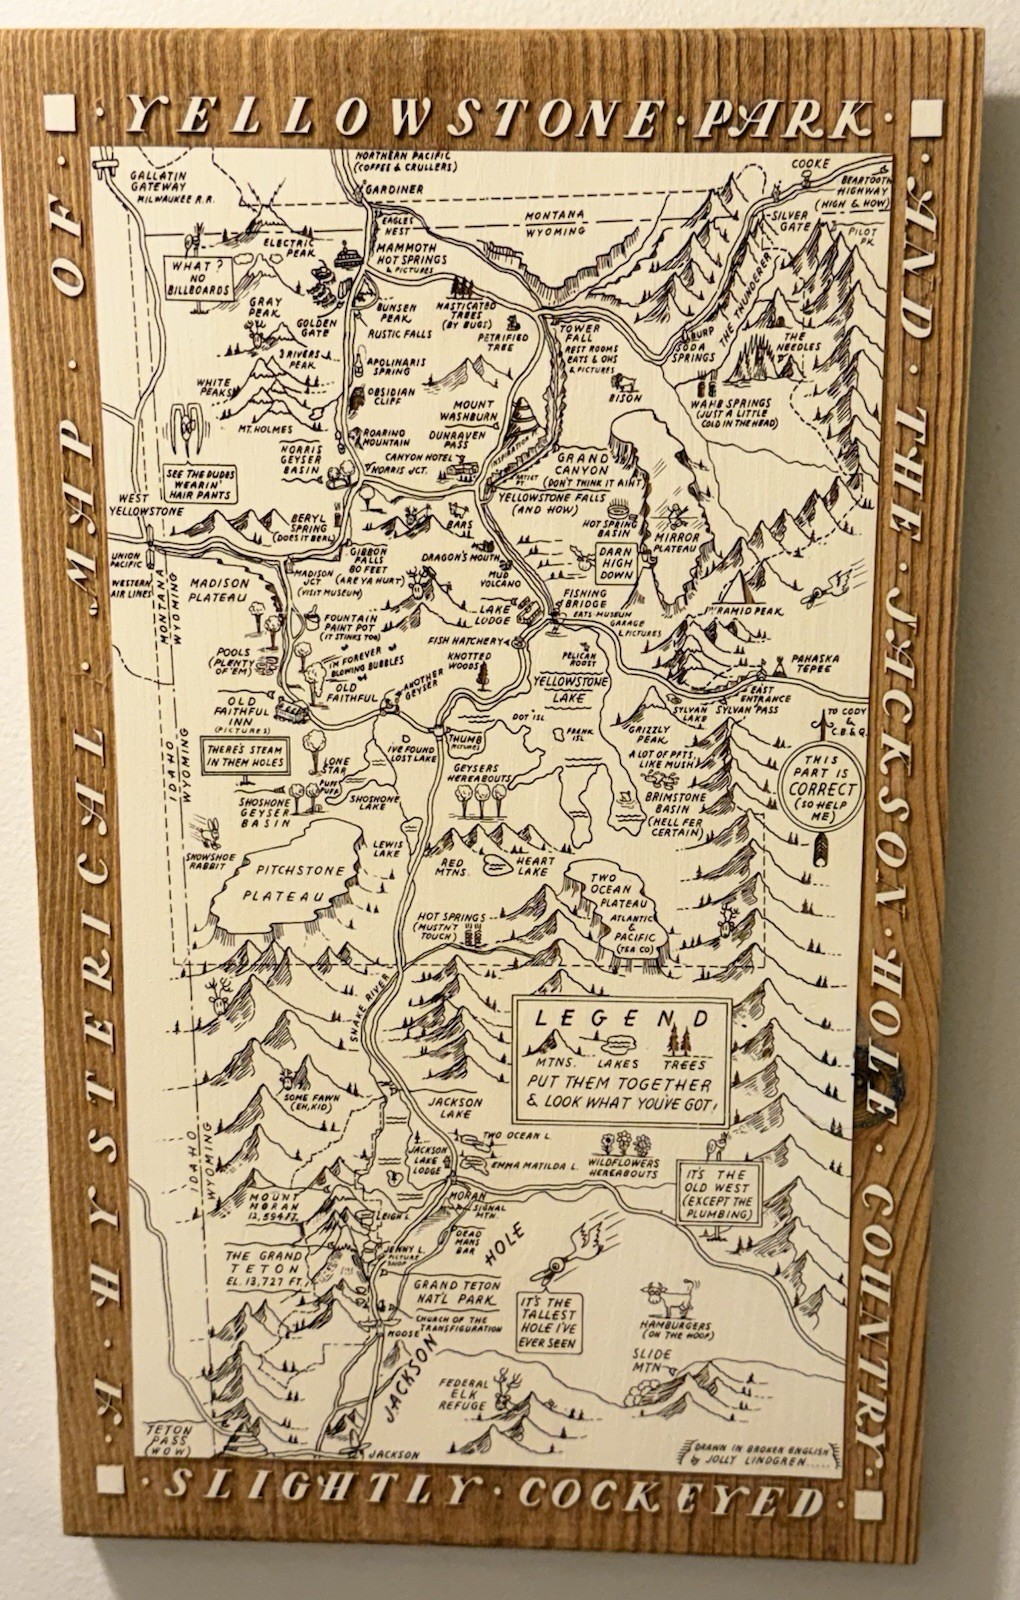 · YELLOWSTONE · PARK ·
· AND · THE · JACKSON · HOLE · COUNTRY ·
· SLIGHTLY · COCKEYED ·
· A · HYSTERICAL · MAP · OF ·
GALLATIN
GATEWAY
MILWAUKEE R.R.
NORTHERN PACIFIC
(COFFEE & CRULLERS)
GARDINER
COOKE
BEARTOOTH
HIGHWAY
(HIGH & HOW)
MONTANA
WYOMING
EAGLES
NEST
ELECTRIC
PEAK
MAMMOTH
HOT SPRINGS
& PICTURES
SILVER
GATE
PILOT
PK.
WHAT?
NO
BILLBOARDS
GRAY
PEAK
GOLDEN
GATE
BUNSEN
PEAK
MASTICATED
TREES
(BY BUGS)
PETRIFIED
TREE
RUSTIC FALLS
TOWER
FALL
REST ROOMS
EATS & OHS
& PICTURES
BURP
SODA
SPRINGS
THE THUNDERER
THE
NEEDLES
3 RIVERS
PEAK
APOLINARIS
SPRING
WHITE
PEAKS
OBSIDIAN
CLIFF
MOUNT
WASHBURN
BISON
WAHB SPRINGS
(JUST A LITTLE
COLD IN THE HEAD)
MT. HOLMES
ROARING
MOUNTAIN
DUNRAVEN
PASS
NORRIS
GEYSER
BASIN
CANYON HOTEL
NORRIS JCT.
INSPIRATION
ARTIST
PT.
GRAND
CANYON
(DON'T THINK IT AIN'T)
SEE THE DUDES
WEARIN'
HAIR PANTS
WEST
YELLOWSTONE
YELLOWSTONE FALLS
(AND HOW)
HOT SPRING
BASIN
MIRROR
PLATEAU
BERYL
SPRING
(DOES IT BERL)
BARS
UNION
PACIFIC
WESTERN
AIR LINES
MONTANA
WYOMING
MADISON
PLATEAU
MADISON
JCT
(VISIT MUSEUM)
GIBBON
FALLS
80 FEET
(ARE YA HURT)
DRAGON'S MOUTH
MUD
VOLCANO
DARN
HIGH
DOWN
PYRAMID PEAK
FOUNTAIN
PAINT POT
(IT STINKS TOO)
LAKE
LODGE
FISHING
BRIDGE
EATS MUSEUM
GARAGE
& PICTURES
FISH HATCHERY
POOLS
(PLENTY
OF 'EM)
I'M FOREVER
BLOWING BUBBLES
KNOTTED
WOODS
PELICAN
ROOST
YELLOWSTONE
LAKE
PAHASKA
TEPEE
OLD
FAITHFUL
ANOTHER
GEYSER
OLD
FAITHFUL
INN
(PICTURES)
SYLVAN
LAKE
SYLVAN PASS
EAST
ENTRANCE
TO CODY
&
C.B.&Q.
DOT ISL
FRANK
ISL.
GRIZZLY
PEAK
THERE'S STEAM
IN THEM HOLES
LONE
STAR
I'VE FOUND
LOST LAKE
THUMB
PICTURES
GEYSERS
HEREABOUTS
A LOT OF PFTS,
LIKE MUSH
BRIMSTONE
BASIN
(HELL FER
CERTAIN)
THIS
PART IS
CORRECT
(SO HELP
ME)
IDAHO
WYOMING
SHOSHONE
GEYSER
BASIN
PUFF
PUFF
SHOSHONE
LAKE
SNOWSHOE
RABBIT
PITCHSTONE
PLATEAU
LEWIS
LAKE
RED
MTNS.
HEART
LAKE
TWO
OCEAN
PLATEAU
ATLANTIC
&
PACIFIC
(TEA CO)
HOT SPRINGS
(MUSTN'T
TOUCH)
SNAKE RIVER
LEGEND
MTNS. LAKES TREES
PUT THEM TOGETHER
& LOOK WHAT YOU'VE GOT!
SOME FAWN
(EH, KID)
JACKSON
LAKE
IDAHO
WYOMING
TWO OCEAN L
JACKSON
LAKE
LODGE
EMMA MATILDA L.
WILDFLOWERS
HEREABOUTS
IT'S THE
OLD WEST
(EXCEPT THE
PLUMBING)
MOUNT
MORAN
12,594 FT.
MORAN
SIGNAL
MTN.
LEIGH L
DEAD
MANS
BAR
THE GRAND
TETON
EL. 13,727 FT.
JENNY L.
PICTURE
SHOP
JACKSON HOLE
GRAND TETON
NAT'L PARK
CHURCH OF THE
TRANSFIGURATION
MOOSE
IT'S THE
TALLEST
HOLE I'VE
EVER SEEN
HAMBURGERS
(ON THE HOOF)
SLIDE
MTN
FEDERAL
ELK
REFUGE
TETON
PASS
(WOW)
JACKSON
DRAWN IN BROKEN ENGLISH
by JOLLY LINDGREN.....